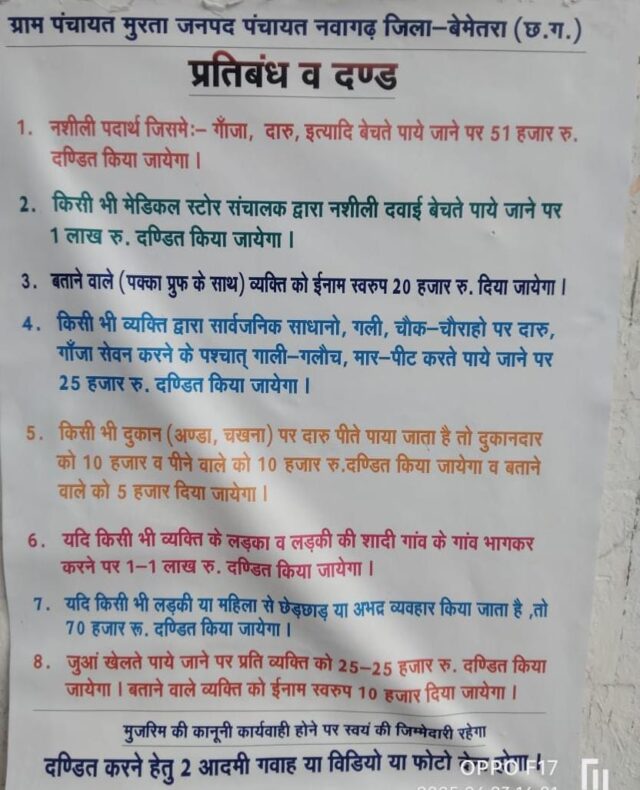 ग्राम पंचायत मुरता जनपद पंचायत नवागढ़ जिला–बेमेतरा (छ.ग.)
प्रतिबंध व दण्ड
1. नशीली पदार्थ जिसमेः– गाँजा, दारु, इत्यादि बेचते पाये जाने पर 51 हजार रु.
दण्डित किया जायेगा।
2. किसी भी मेडिकल स्टोर संचालक द्वारा नशीली दवाई बेचते पाये जाने पर
1 लाख रु. दण्डित किया जायेगा।
3. बताने वाले (पक्का प्रुफ के साथ) व्यक्ति को ईनाम स्वरुप 20 हजार रु. दिया जायेगा।
4. किसी भी व्यक्ति द्वारा सार्वजनिक साधानो, गली, चौक–चौराहो पर दारु,
गाँजा सेवन करने के पश्चात् गाली–गलौच, मार–पीट करते पाये जाने पर
25 हजार रु. दण्डित किया जायेगा।
5. किसी भी दुकान (अण्डा, चखना) पर दारु पीते पाया जाता है तो दुकानदार
को 10 हजार व पीने वाले को 10 हजार रु.दण्डित किया जायेगा व बताने
वाले को 5 हजार दिया जायेगा।
6. यदि किसी भी व्यक्ति के लड़का व लड़की की शादी गांव के गांव भागकर
करने पर 1–1 लाख रु. दण्डित किया जायेगा।
7. यदि किसी भी लड़की या महिला से छेड़छाड़ या अभद्र व्यवहार किया जाता है ,तो
70 हजार रू. दण्डित किया जायेगा।
8. जुआं खेलते पाये जाने पर प्रति व्यक्ति को 25–25 हजार रु. दण्डित किया
जायेगा। बताने वाले व्यक्ति को ईनाम स्वरुप 10 हजार दिया जायेगा।
मुजरिम की कानूनी कार्यवाही होने पर स्वयं की जिम्मेदारी रहेगा
दण्डित करने हेतु 2 आदमी गवाह या विडियो या फोटो होगा।
OPPO F17